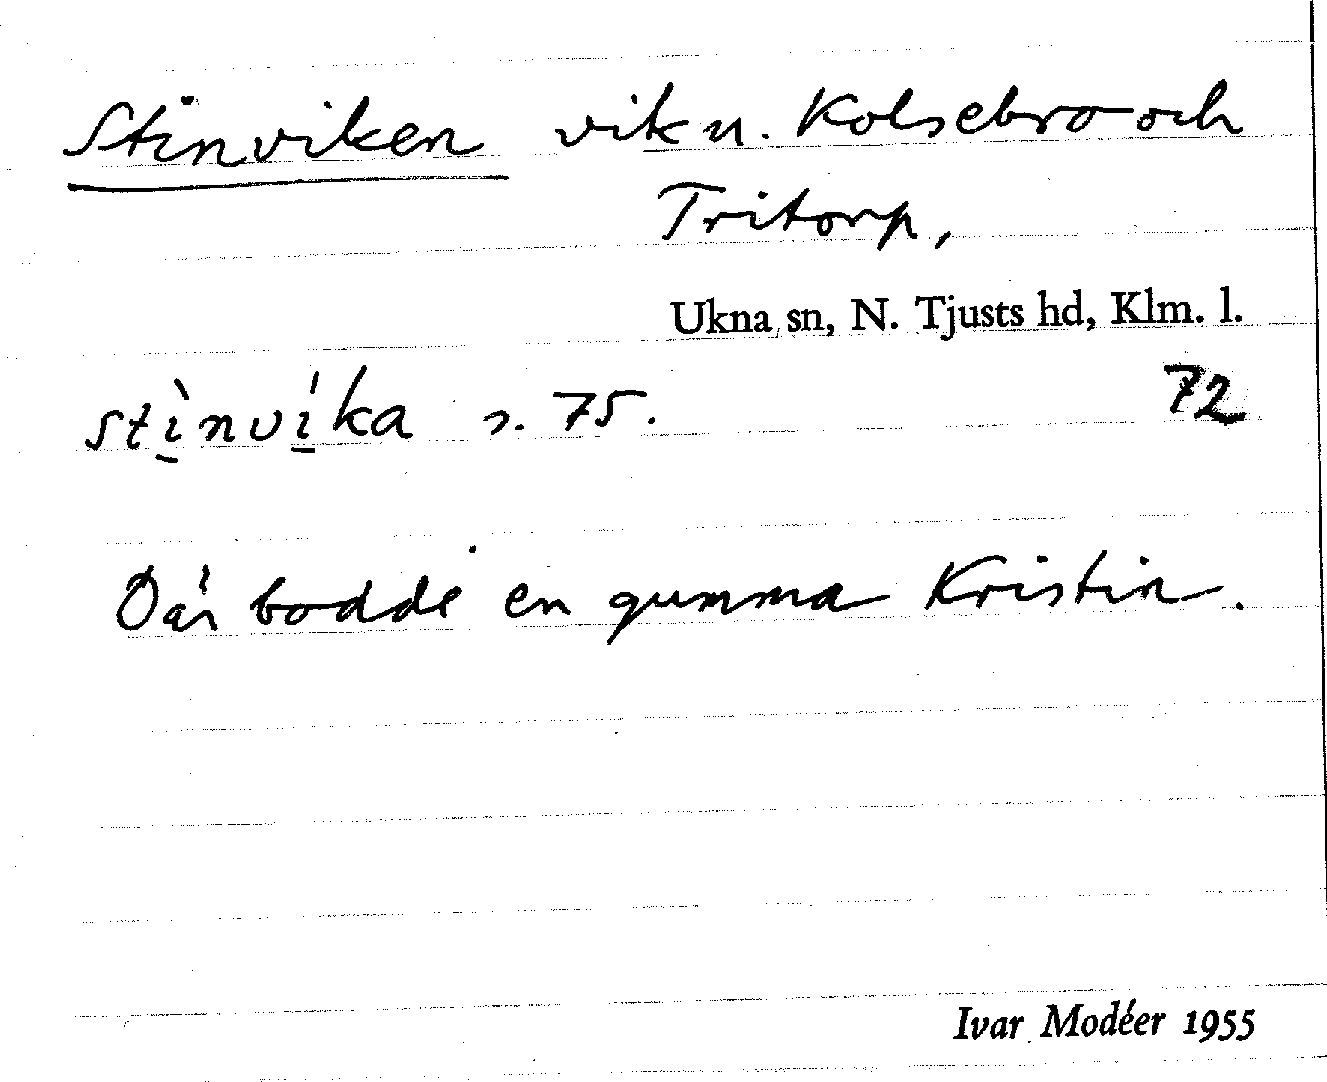 Stinviken vik u. Kolsebro och
Tritorp,
Ukna sn, N. Tjusts hd, Klm. l.
stì̠nví̠ka s. 75. 72
Där bodde en gumma Kristin.
Ivar Modéer 1955